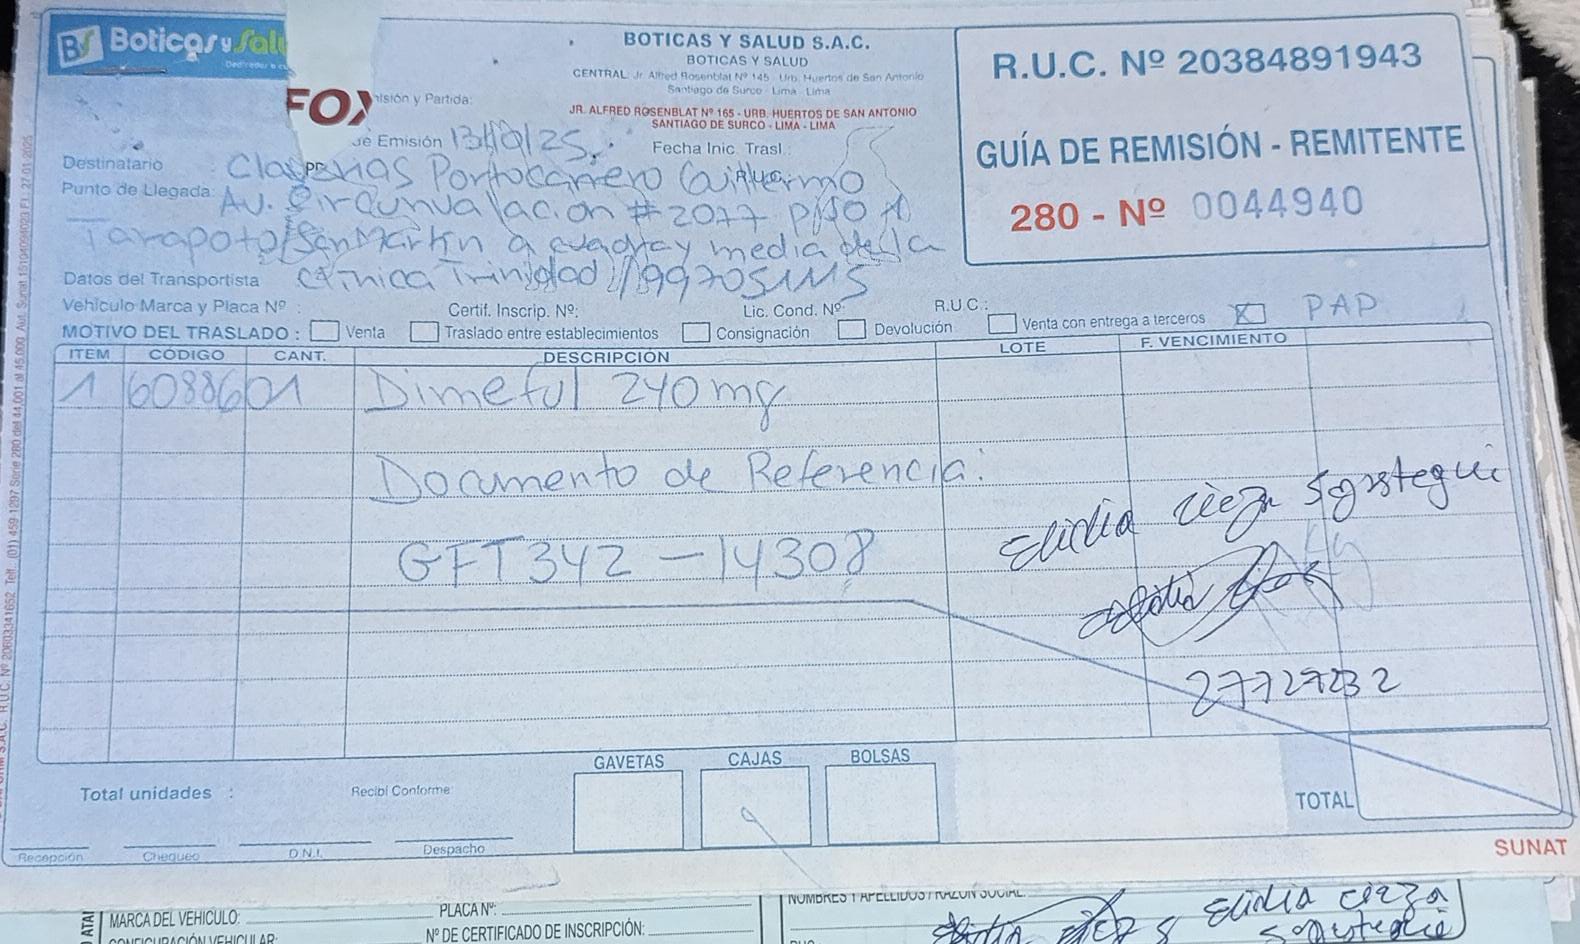 BS Boticas y Salu
Dedicados a cu
BOTICAS Y SALUD S.A.C.
BOTICAS Y SALUD
CENTRAL: Jr. Alfred Rosenblat Nº 145 - Urb. Huertos de San Antonio
Santiago de Surco - Lima - Lima
JR. ALFRED ROSENBLAT Nº 165 - URB. HUERTOS DE SAN ANTONIO
SANTIAGO DE SURCO - LIMA - LIMA
R.U.C. Nº 20384891943
GUÍA DE REMISIÓN - REMITENTE
280 - Nº 0044940
FOX
isión y Partida:
de Emisión 13/10/25
Fecha Inic. Trasl.:
Destinatario Portocarrero Guillermo
Punto de Llegada: Av. Circunvalacion #2077 PISO 1
Tarapoto/San Martin a cuadra y media de la
Datos del Transportista Clínica Trinidad // 997051115
Vehículo Marca y Placa Nº : Certif. Inscrip. Nº: Lic. Cond. Nº R.U.C.:
MOTIVO DEL TRASLADO : Venta Traslado entre establecimientos Consignación Devolución Venta con entrega a terceros X PAP
ITEM CÓDIGO CANT. DESCRIPCIÓN LOTE F. VENCIMIENTO
1 608860 1 Dimeful 240 mg
Documento de Referencia:
GFT342 - 14308
Elidia cieza Sopstegui
27727232
GAVETAS CAJAS BOLSAS
Total unidades : Recibí Conforme:
TOTAL
Recepción Chequeo D.N.I. Despacho
SUNAT
MARCA DEL VEHICULO:
PLACA Nº:
CONFIGURACIÓN VEHICULAR:
Nº DE CERTIFICADO DE INSCRIPCIÓN:
NOMBRES Y APELLIDOS / RAZON SOCIAL:
Elidia cieza